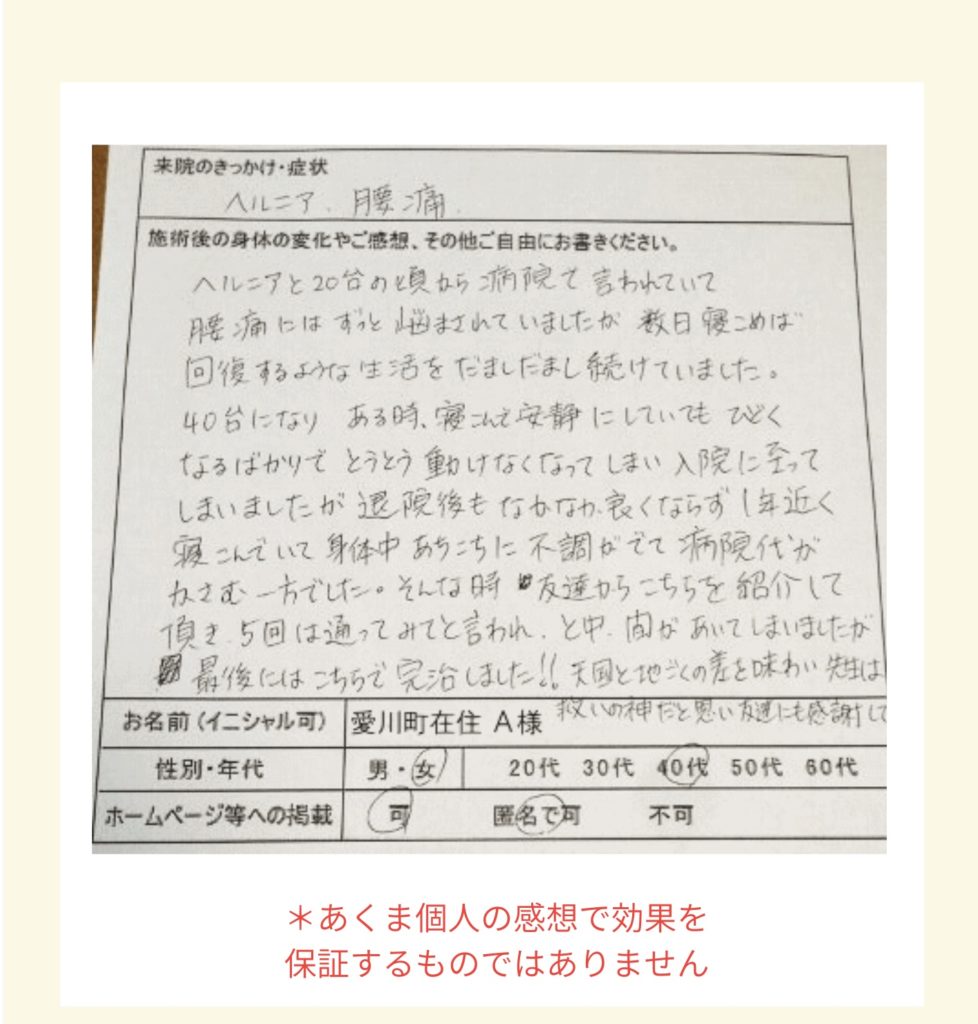 来院のきっかけ・症状
ヘルニア、腰痛
施術後の身体の変化やご感想、その他ご自由にお書きください。
ヘルニアと20台の頃から病院で言われていて
腰痛にはずっと悩まされていましたが 数日寝こめば
回復するような生活をだましだまし続けていました。
40台になり ある時、寝こんで安静にしていてもひどく
なるばかりでとうとう動けなくなってしまい入院に至って
しまいましたが退院後もなかなか良くならず1年近く
寝こんでいて身体中あちこちに不調がでて病院代が
かさむ一方でした。そんな時 友達からこちらを紹介して
頂き、5回は通ってみてと言われ、と中、間があいてしまいましたが
最後にはこちらで完治しました!! 天国と地ごくの差を味わい 先生は
救いの神だと思い友達にも感謝して
お名前(イニシャル可) 愛川町在住 A様
性別・年代 男・女 20代 30代 40代 50代 60代
ホームページ等への掲載 可 匿名で可 不可
＊あくま個人の感想で効果を
保証するものではありません